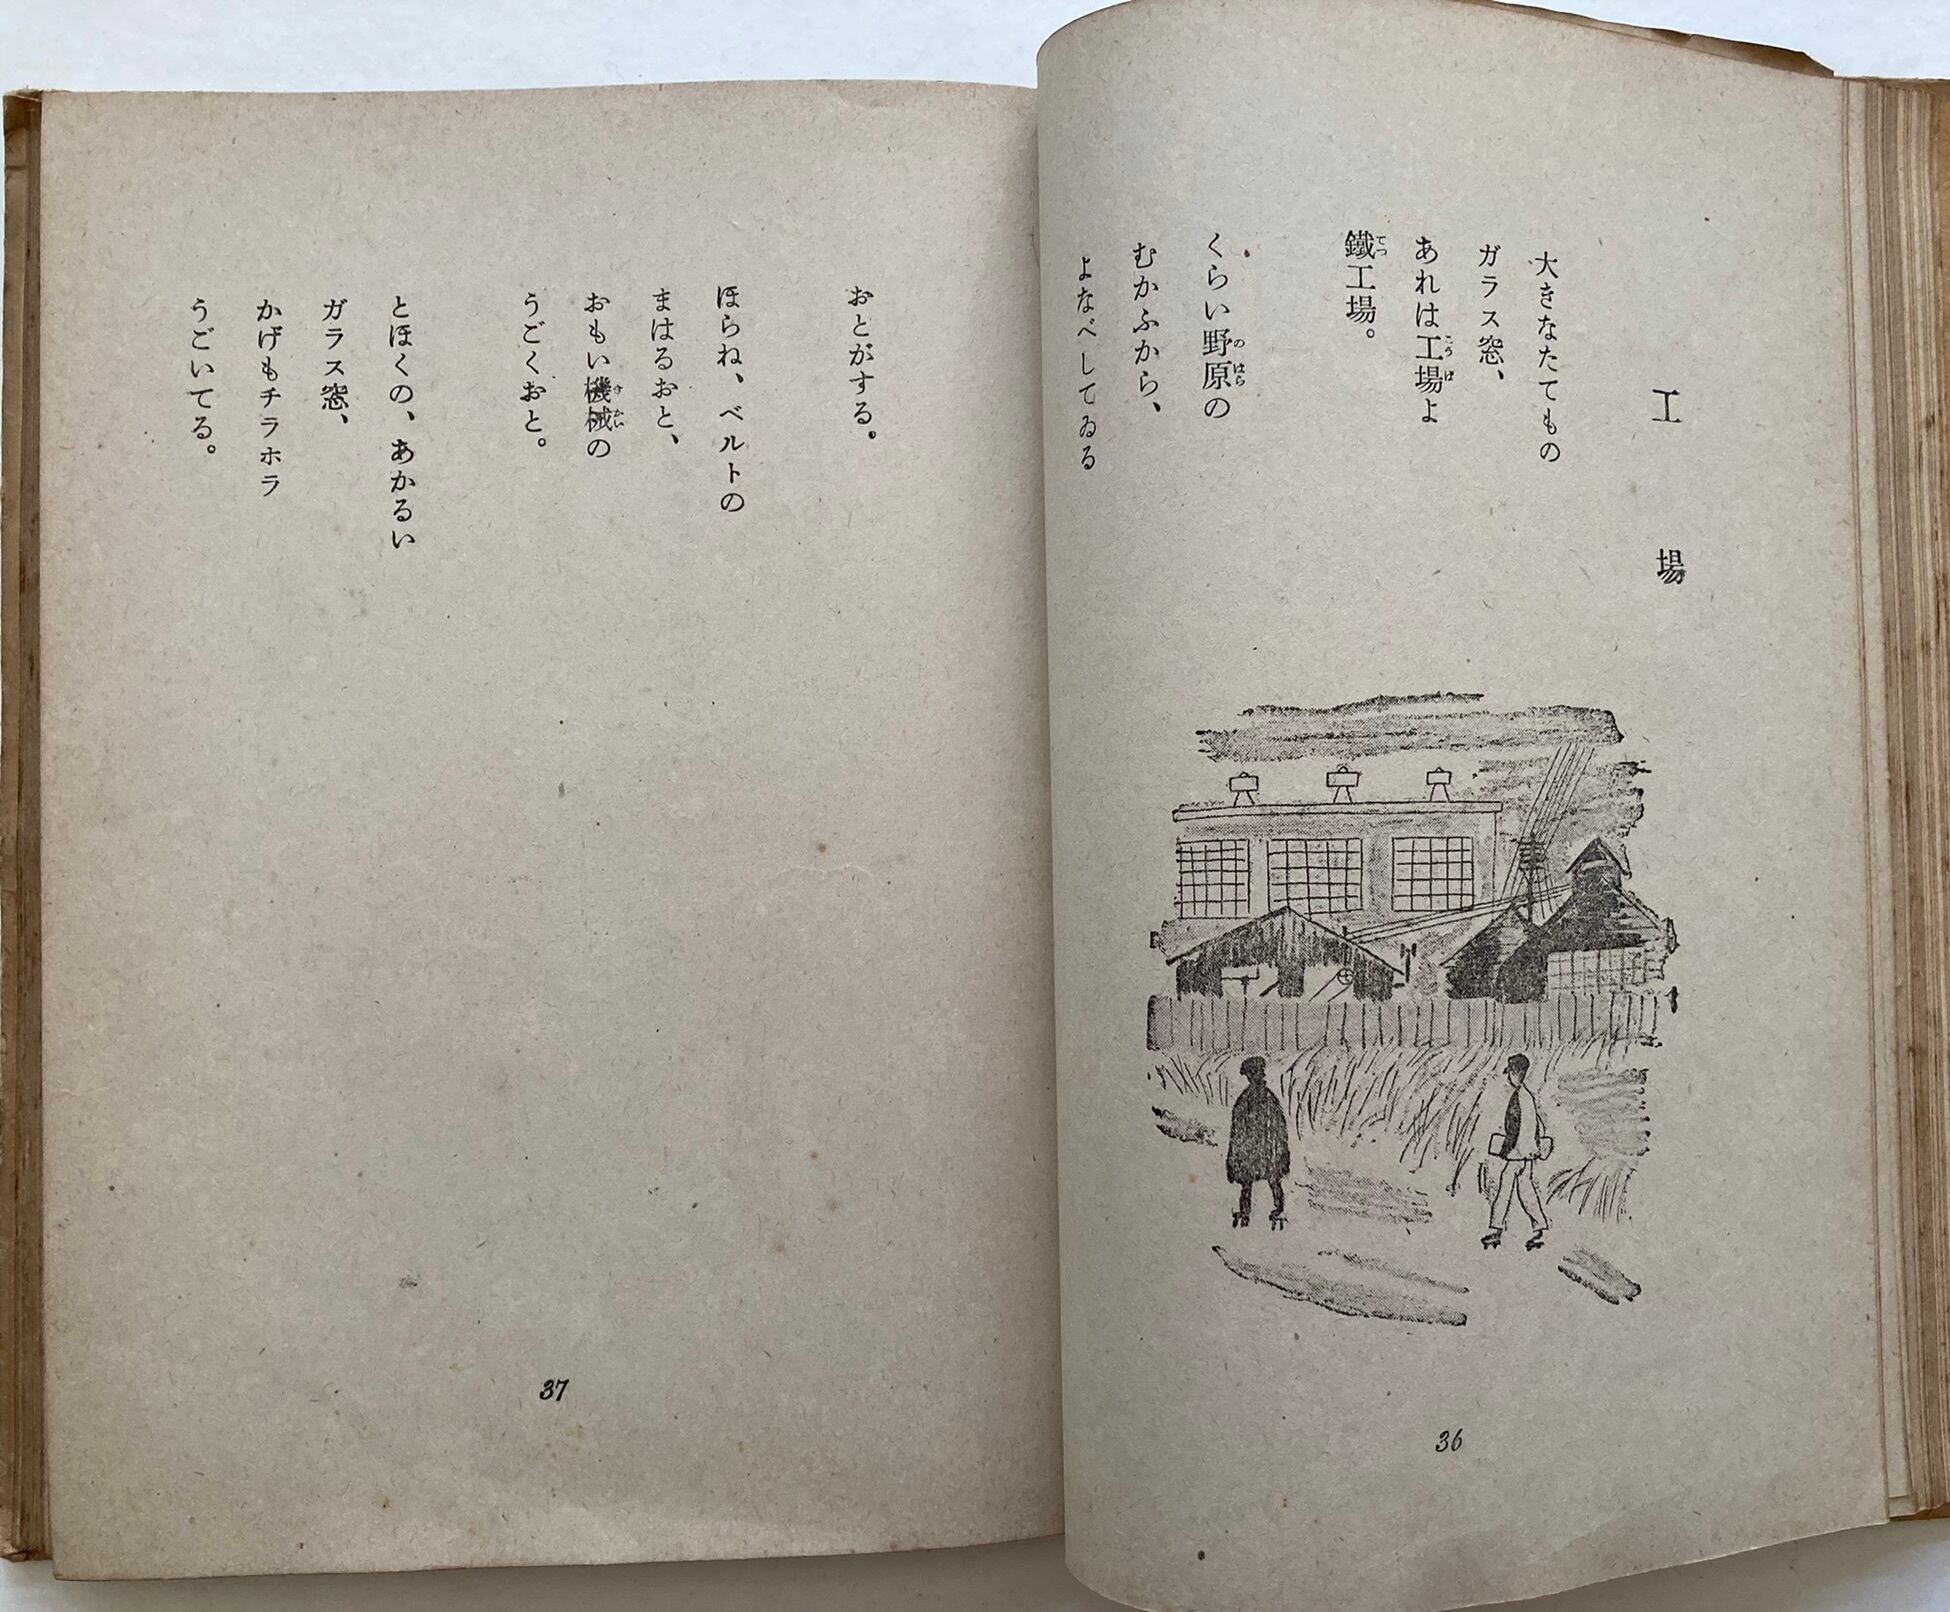 工場
大きなたてもの
ガラス窓、
あれは工場よ
鐵工場。
くらい野原の
むかふから、
よなべしてゐる
36
おとがする。
ほらね、ベルトの
まはるおと、
おもい機械の
うごくおと。
とほくの、あかるい
ガラス窓、
かげもチラホラ
うごいてる。
37